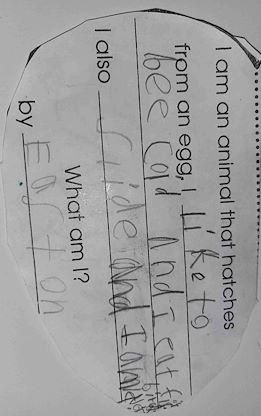 I am an animal that hatches
from an egg, I Like to
bee cold And I eat
I also Slide and I am
What am I?
by Easton